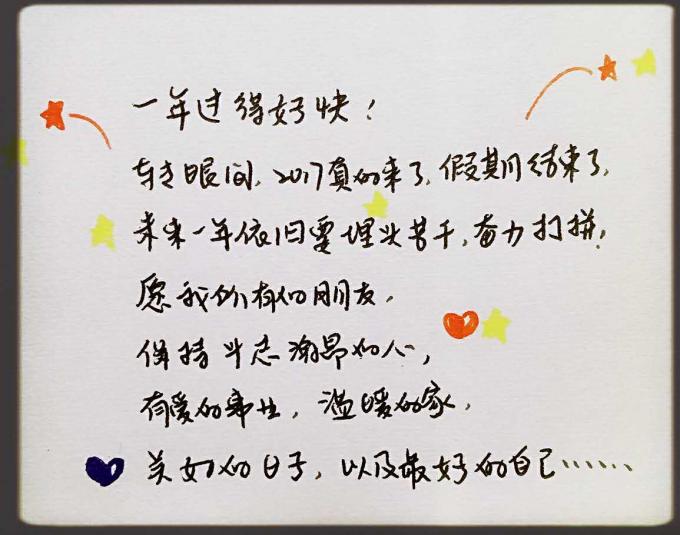 一年过得好快！
转眼间，2017真的来了，假期结束了，
未来一年依旧要埋头苦干，奋力打拼，
愿我们有的朋友，
保持斗志激昂的人，
有爱的事业，温暖的家，
美好的日子，以及最好的自己……